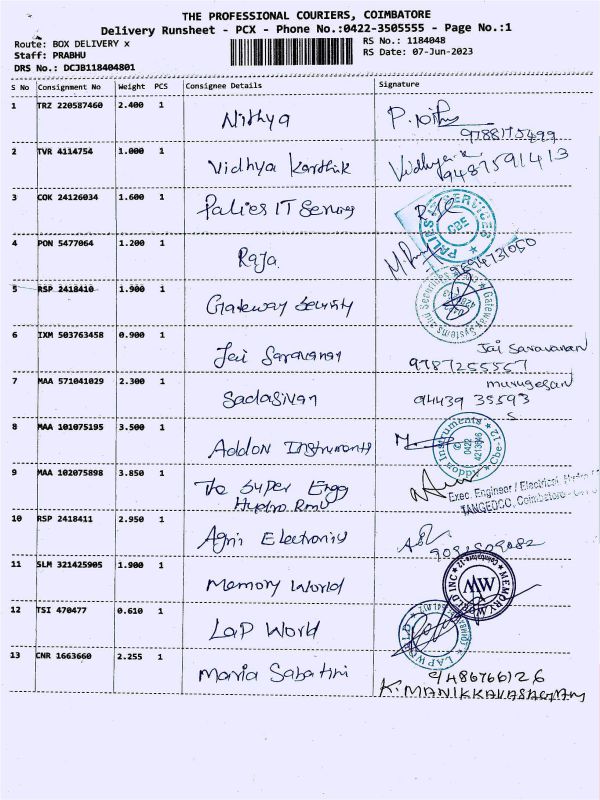 THE PROFESSIONAL COURIERS, COIMBATORE
Delivery Runsheet - PCX - Phone No.:0422-3505555 - Page No.:1
Route: BOX DELIVERY x
RS No.: 1184048
Staff: PRABHU
RS Date: 07-Jun-2023
DRS No.: DCJB118404801
S No Consignment No Weight PCS Consignee Details Signature
1 TRZ 220587460 2.400 1 Nithya
9788175499
2 TVR 4114754 1.000 1 Vidhya Karthik Vidhya.k
9487591413
3 COK 24126034 1.600 1 Palies IT Services
PALIES IT SERVICES CBE
4 PON 5477064 1.200 1 Raja
9894731050
5 RSP 2418410 1.900 1 Gateway Security
Gateway Systems and Securities
6 IXM 503763458 0.900 1 Jai Saravanan Jai Saravanan
9787255557
7 MAA 571041029 2.300 1 Sadasivan murugesan
94439 35593
S
8 MAA 101075195 3.500 1 Addon Instruments
Addon Instruments Cbe-12 0422 4213946
9 MAA 102075898 3.850 1 The Super Engg
Hydro.
Exec. Engineer / Electrical, Hydro
TANGEDCO, Coimbatore
10 RSP 2418411 2.950 1 Agni Electronis
11 SLM 321425905 1.900 1 Memory World
MEMORY WORLD INC MW Coimbatore-12
12 TSI 470477 0.610 1 Lap World
LAPWORLD
13 CNR 1663660 2.255 1 Maria Sabatini 9486766126
K. MANIKKAVASAGAM